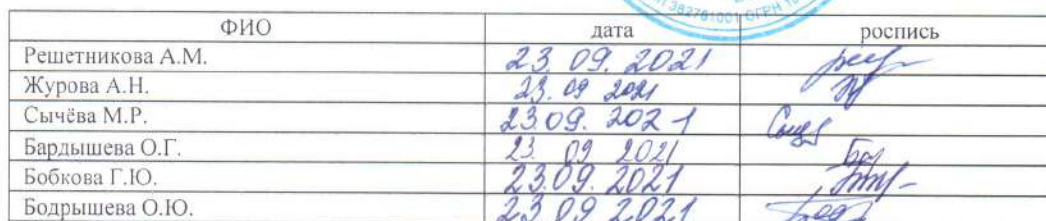 382761001 ОГРН
ФИО дата роспись
Решетникова А.М. 23.09.2021
Журова А.Н. 23.09 2021
Сычёва М.Р. 23.09.2021
Бардышева О.Г. 23.09 2021
Бобкова Г.Ю. 23.09.2021
Бодрышева О.Ю. 23 09 2021